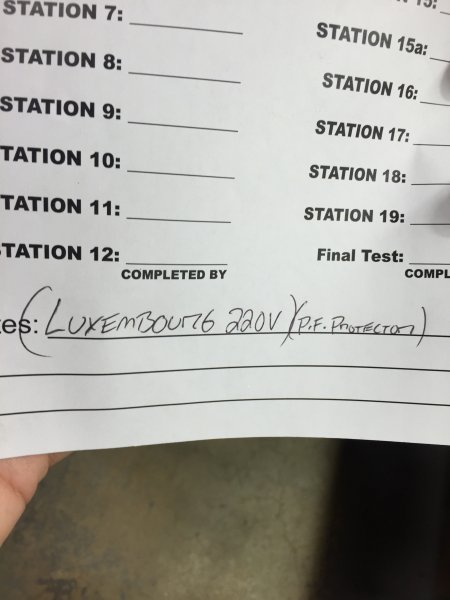 STATION 7:
STATION 8:
STATION 9:
TATION 10:
TATION 11:
STATION 12:
COMPLETED BY
15:
STATION 15a:
STATION 16:
STATION 17:
STATION 18:
STATION 19:
Final Test:
COMPL
es: (LUXEMBOURG 220V) (P.F. PROTECTOR)